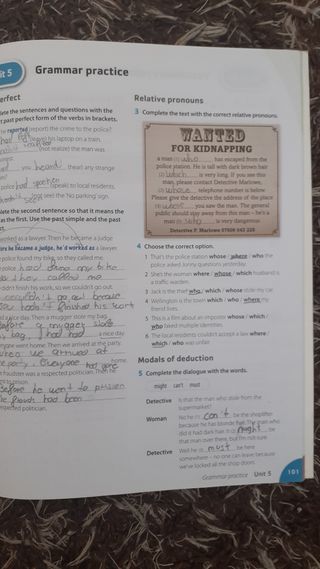 Unit 5 Grammar practice
Relative pronouns
3 Complete the text with the correct relative pronouns.
WANTED
FOR KIDNAPPING
a man (1) who has escaped from the
police station. He is tall with dark brown hair
is very long. If you see this
man, please contact Detective Marlowe,
(3) whose telephone number is below.
Please give the detective the address of the place
you saw the man. The general
public should stay away from this man – he's a
man (5) who is very dangerous.
Detective P. Marlowe 07606 043 228
4 Choose the correct option.
1 That's the police station whose / where the
police asked Jonny questions yesterday.
2 She's the woman where / whose / which husband is
a traffic warden.
3 Jack is the thief who / which / whose stole my car.
4 Wellington is the town which / who / where my
friend lives.
5 This is a film about an impostor whose / which /
who faked multiple identities.
6 The local residents couldn't accept a law where /
which / who was unfair.
Modals of deduction
5 Complete the dialogue with the words.
might can't must
Detective Is that the man who stole from the
supermarket?
Woman No! He (1) can't be the shoplifter
because he has blonde hair. The man who
did it had dark hair. It (2) might be
that man over there, but I'm not sure.
Detective Well, he (3) must be here
somewhere – no one can leave because
we've locked all the shop doors.
Grammar practice Unit 5 101
perfect
lete the sentences and questions with the
t past perfect form of the verbs in brackets.
he reported (report) the crime to the police?
had left (leave) his laptop on a train.
(not realize) the man was
heard (hear) any strange
police had spoken (speak) to local residents.
(not see) the 'No parking' sign.
lete the second sentence so that it means the
as the first. Use the past simple and the past
worked as a lawyer. Then he became a judge.
ore he became a judge, he'd worked as a lawyer.
e police found my bike, so they called me.
didn't finish his work, so we couldn't go out.
a nice day. Then a mugger stole my bag.
ryone went home. Then we arrived at the party.
when we arrived at
he party, everyone had gone home.
e fraudster was a respected politician. Then he
nt to prison.
before he went to prison
the fraud had been
respected politician.